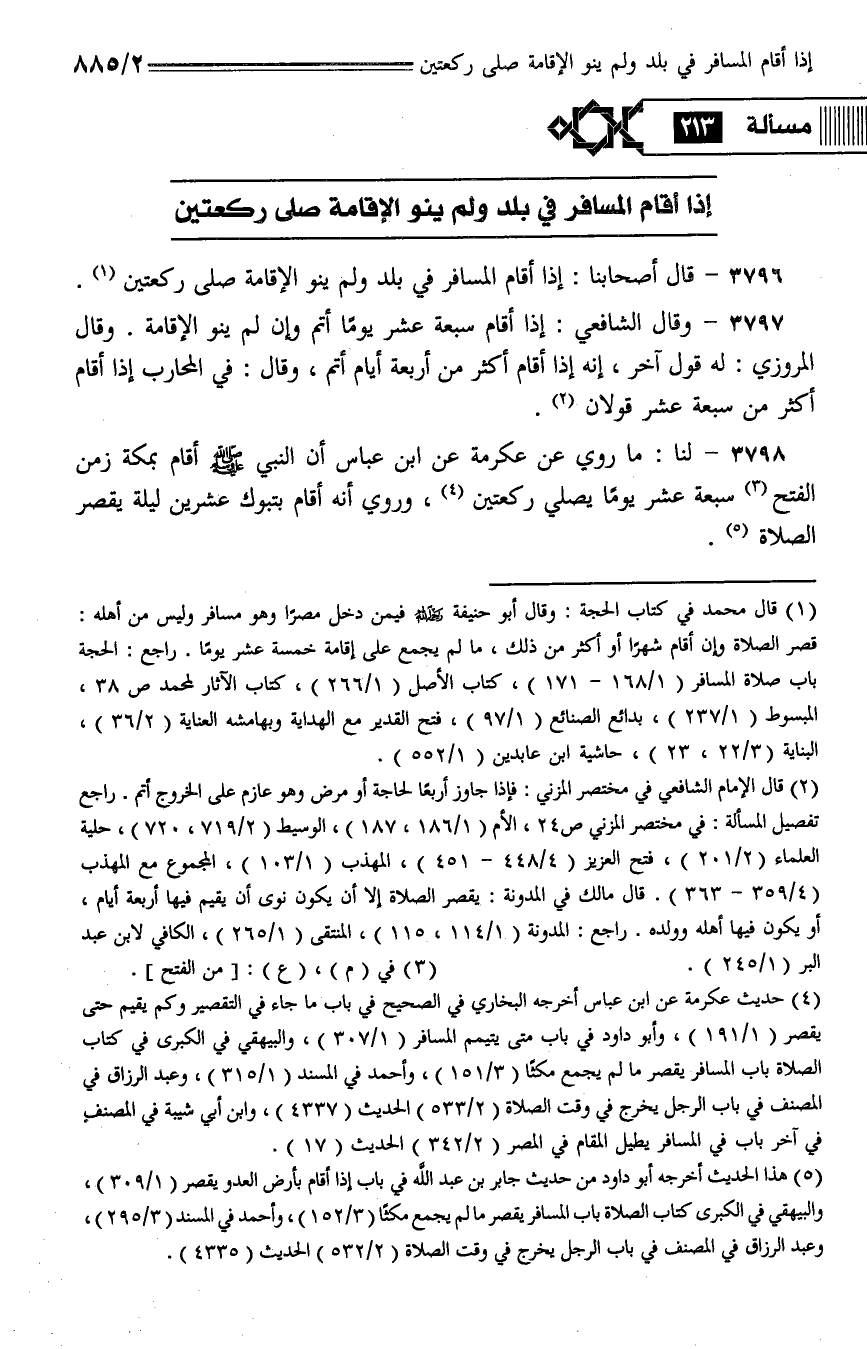 إذا أقام المسافر في بلد ولم ينو الإقامة صلى ركعتين ٨٨٥/٢
مسألة ٢١٣
إذا أقام المسافر في بلد ولم ينو الإقامة صلى ركعتين
٣٧٩٦ - قال أصحابنا : إذا أقام المسافر في بلد ولم ينو الإقامة صلى ركعتين (١) .
٣٧٩٧ - وقال الشافعي : إذا أقام سبعة عشر يومًا أتم وإن لم ينو الإقامة . وقال
المروزي : له قول آخر ، إنه إذا أقام أكثر من أربعة أيام أتم ، وقال : في المحارب إذا أقام
أكثر من سبعة عشر قولان (٢) .
٣٧٩٨ - لنا : ما روي عن عكرمة عن ابن عباس أن النبي ﷺ أقام بمكة زمن
الفتح (٣) سبعة عشر يومًا يصلي ركعتين (٤) ، وروي أنه أقام بتبوك عشرين ليلة يقصر
الصلاة (٥) .
(١) قال محمد في كتاب الحجة : وقال أبو حنيفة فيمن دخل مصرًا وهو مسافر وليس من أهله :
قصر الصلاة وإن أقام شهرًا أو أكثر من ذلك ، ما لم يجمع على إقامة خمسة عشر يومًا . راجع : الحجة
باب صلاة المسافر ( ١٦٨/١ - ١٧١ ) ، كتاب الأصل ( ٢٦٦/١ ) ، كتاب الآثار لمحمد ص ٣٨ ،
المبسوط ( ٢٣٧/١ ) ، بدائع الصنائع ( ٩٧/١ ) ، فتح القدير مع الهداية وبهامشه العناية ( ٣٦/٢ ) ،
البناية ( ٢٢/٣ ، ٢٣ ) ، حاشية ابن عابدين ( ٥٥٢/١ ) .
(٢) قال الإمام الشافعي في مختصر المزني : فإذا جاوز أربعًا لحاجة أو مرض وهو عازم على الخروج أتم . راجع
تفصيل المسألة : في مختصر المزني ص٢٤ ، الأم ( ١٨٦/١ ، ١٨٧ ) ، الوسيط ( ٧١٩/٢ ، ٧٢٠ ) ، حلية
العلماء ( ٢٠١/٢ ) ، فتح العزيز ( ٤٤٨/٤ - ٤٥١ ) ، المهذب ( ١٠٣/١ ) ، المجموع مع المهذب
( ٣٥٩/٤ - ٣٦٣ ) . قال مالك في المدونة : يقصر الصلاة إلا أن يكون نوى أن يقيم فيها أربعة أيام ،
أو يكون فيها أهله وولده . راجع : المدونة ( ١١٤/١ ، ١١٥ ) ، المنتقى ( ٢٦٥/١ ) ، الكافي لابن عبد
البر ( ٢٤٥/١ ) . (٣) في ( م ) ، ( ع ) : [ من الفتح ] .
(٤) حديث عكرمة عن ابن عباس أخرجه البخاري في الصحيح في باب ما جاء في التقصير وكم يقيم حتى
يقصر ( ١٩١/١ ) ، وأبو داود في باب متى يتيمم المسافر ( ٣٠٧/١ ) ، والبيهقي في الكبرى في كتاب
الصلاة باب المسافر يقصر ما لم يجمع مكثًا ( ١٥١/٣ ) ، وأحمد في المسند ( ٣١٥/١ ) ، وعبد الرزاق في
المصنف في باب الرجل يخرج في وقت الصلاة ( ٥٣٣/٢ ) الحديث ( ٤٣٣٧ ) ، وابن أبي شيبة في المصنف
في آخر باب في المسافر يطيل المقام في المصر ( ٣٤٢/٢ ) الحديث ( ١٧ ) .
(٥) هذا الحديث أخرجه أبو داود من حديث جابر بن عبد اللَّه في باب إذا أقام بأرض العدو يقصر ( ٣٠٩/١ ) ،
والبيهقي في الكبرى كتاب الصلاة باب المسافر يقصر ما لم يجمع مكثًا ( ١٥٢/٣ ) ، وأحمد في المسند ( ٢٩٥/٣ ) ،
وعبد الرزاق في المصنف في باب الرجل يخرج في وقت الصلاة ( ٥٣٢/٢ ) الحديث ( ٤٣٣٥ ) .